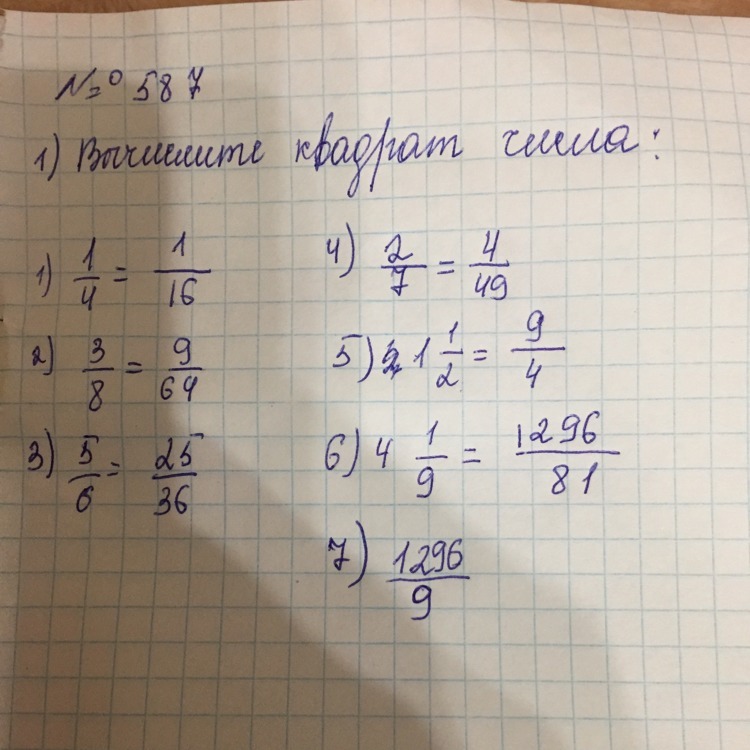 № 587
1) Вычислите квадрат числа:
1) 1/4 = 1/16
2) 3/8 = 9/64
3) 5/6 = 25/36
4) 2/7 = 4/49
5) 1 1/2 = 9/4
6) 4 1/9 = 1296/81
7) 1296/9